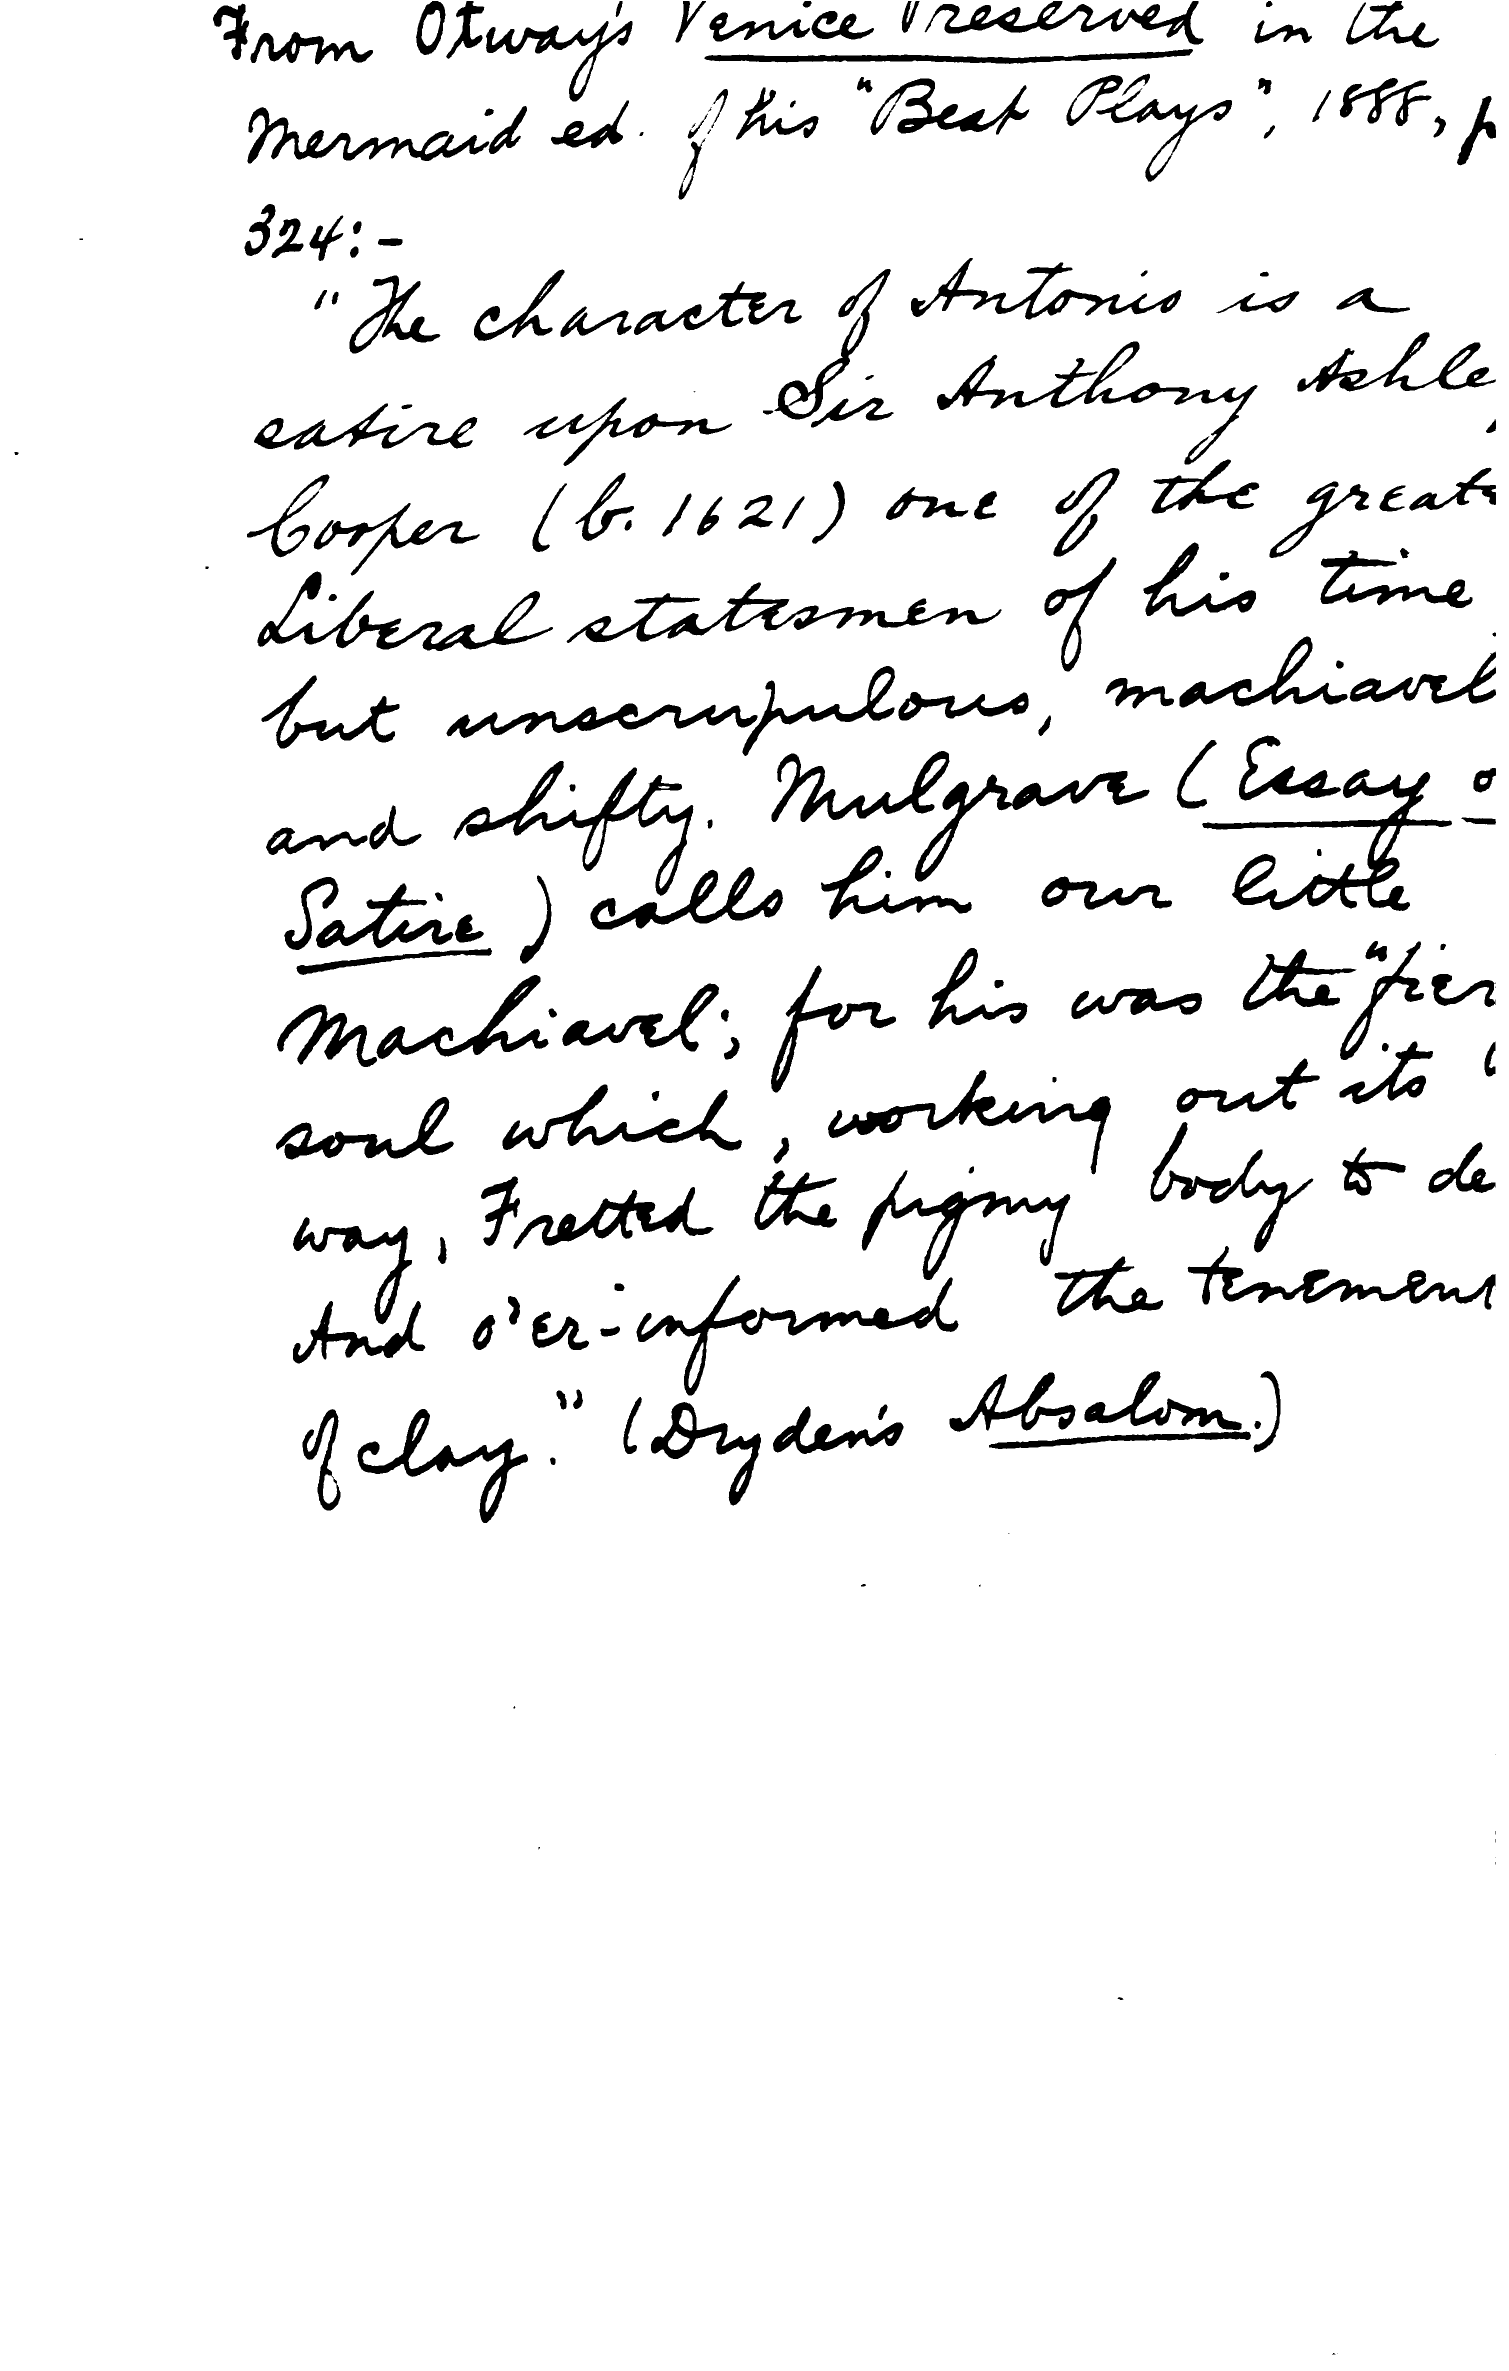 From Otway's Venice Preserved in the
Mermaid ed. of his "Best Plays", 1888, p
324:-
"The character of Antonio is a
satire upon Sir Anthony Ashle
Cooper (b. 1621) one of the greate
Liberal statesmen of his time
but unscrupulous, machiavel
and shifty. Mulgrave (Essay o
Satire) calls him our little
Machiavel; for his was the "fier
soul which, working out its
way, Fretted the pigmy body to de
And o'er-informed the tenement
of clay." (Dryden's Absalom.)